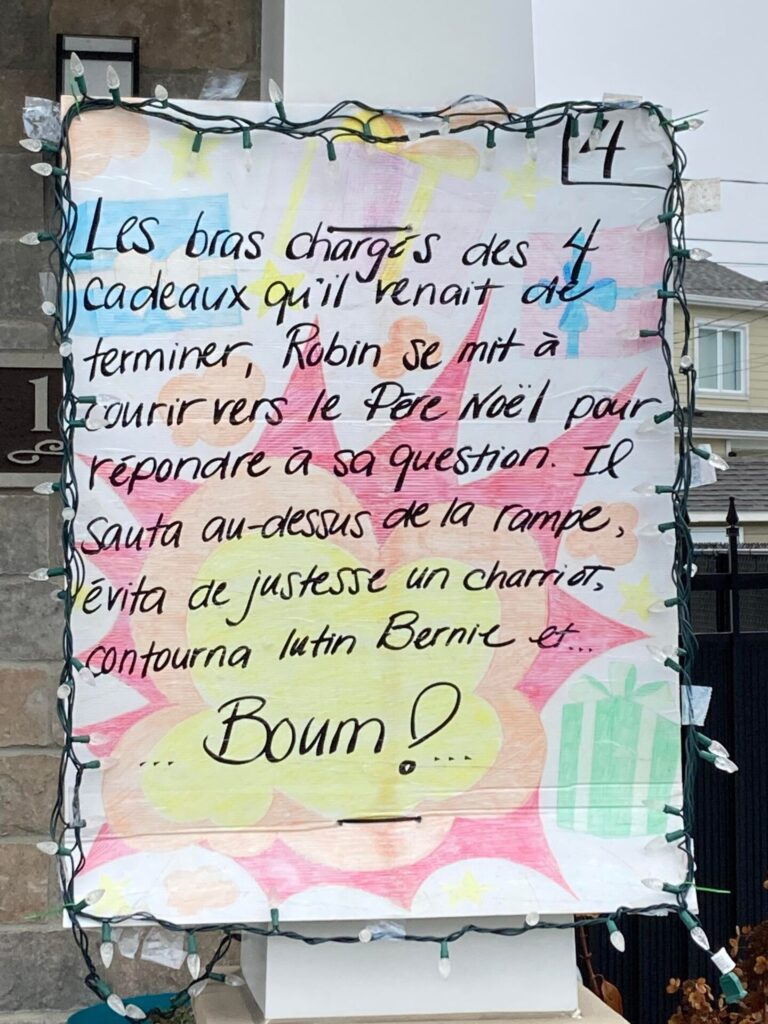 4
Les bras chargés des 4
cadeaux qu'il venait de
terminer, Robin se mit à
courir vers le Père Noël pour
répondre à sa question. Il
sauta au-dessus de la rampe,
évita de justesse un charriot,
contourna lutin Bernie et...
... Boum! ...
1